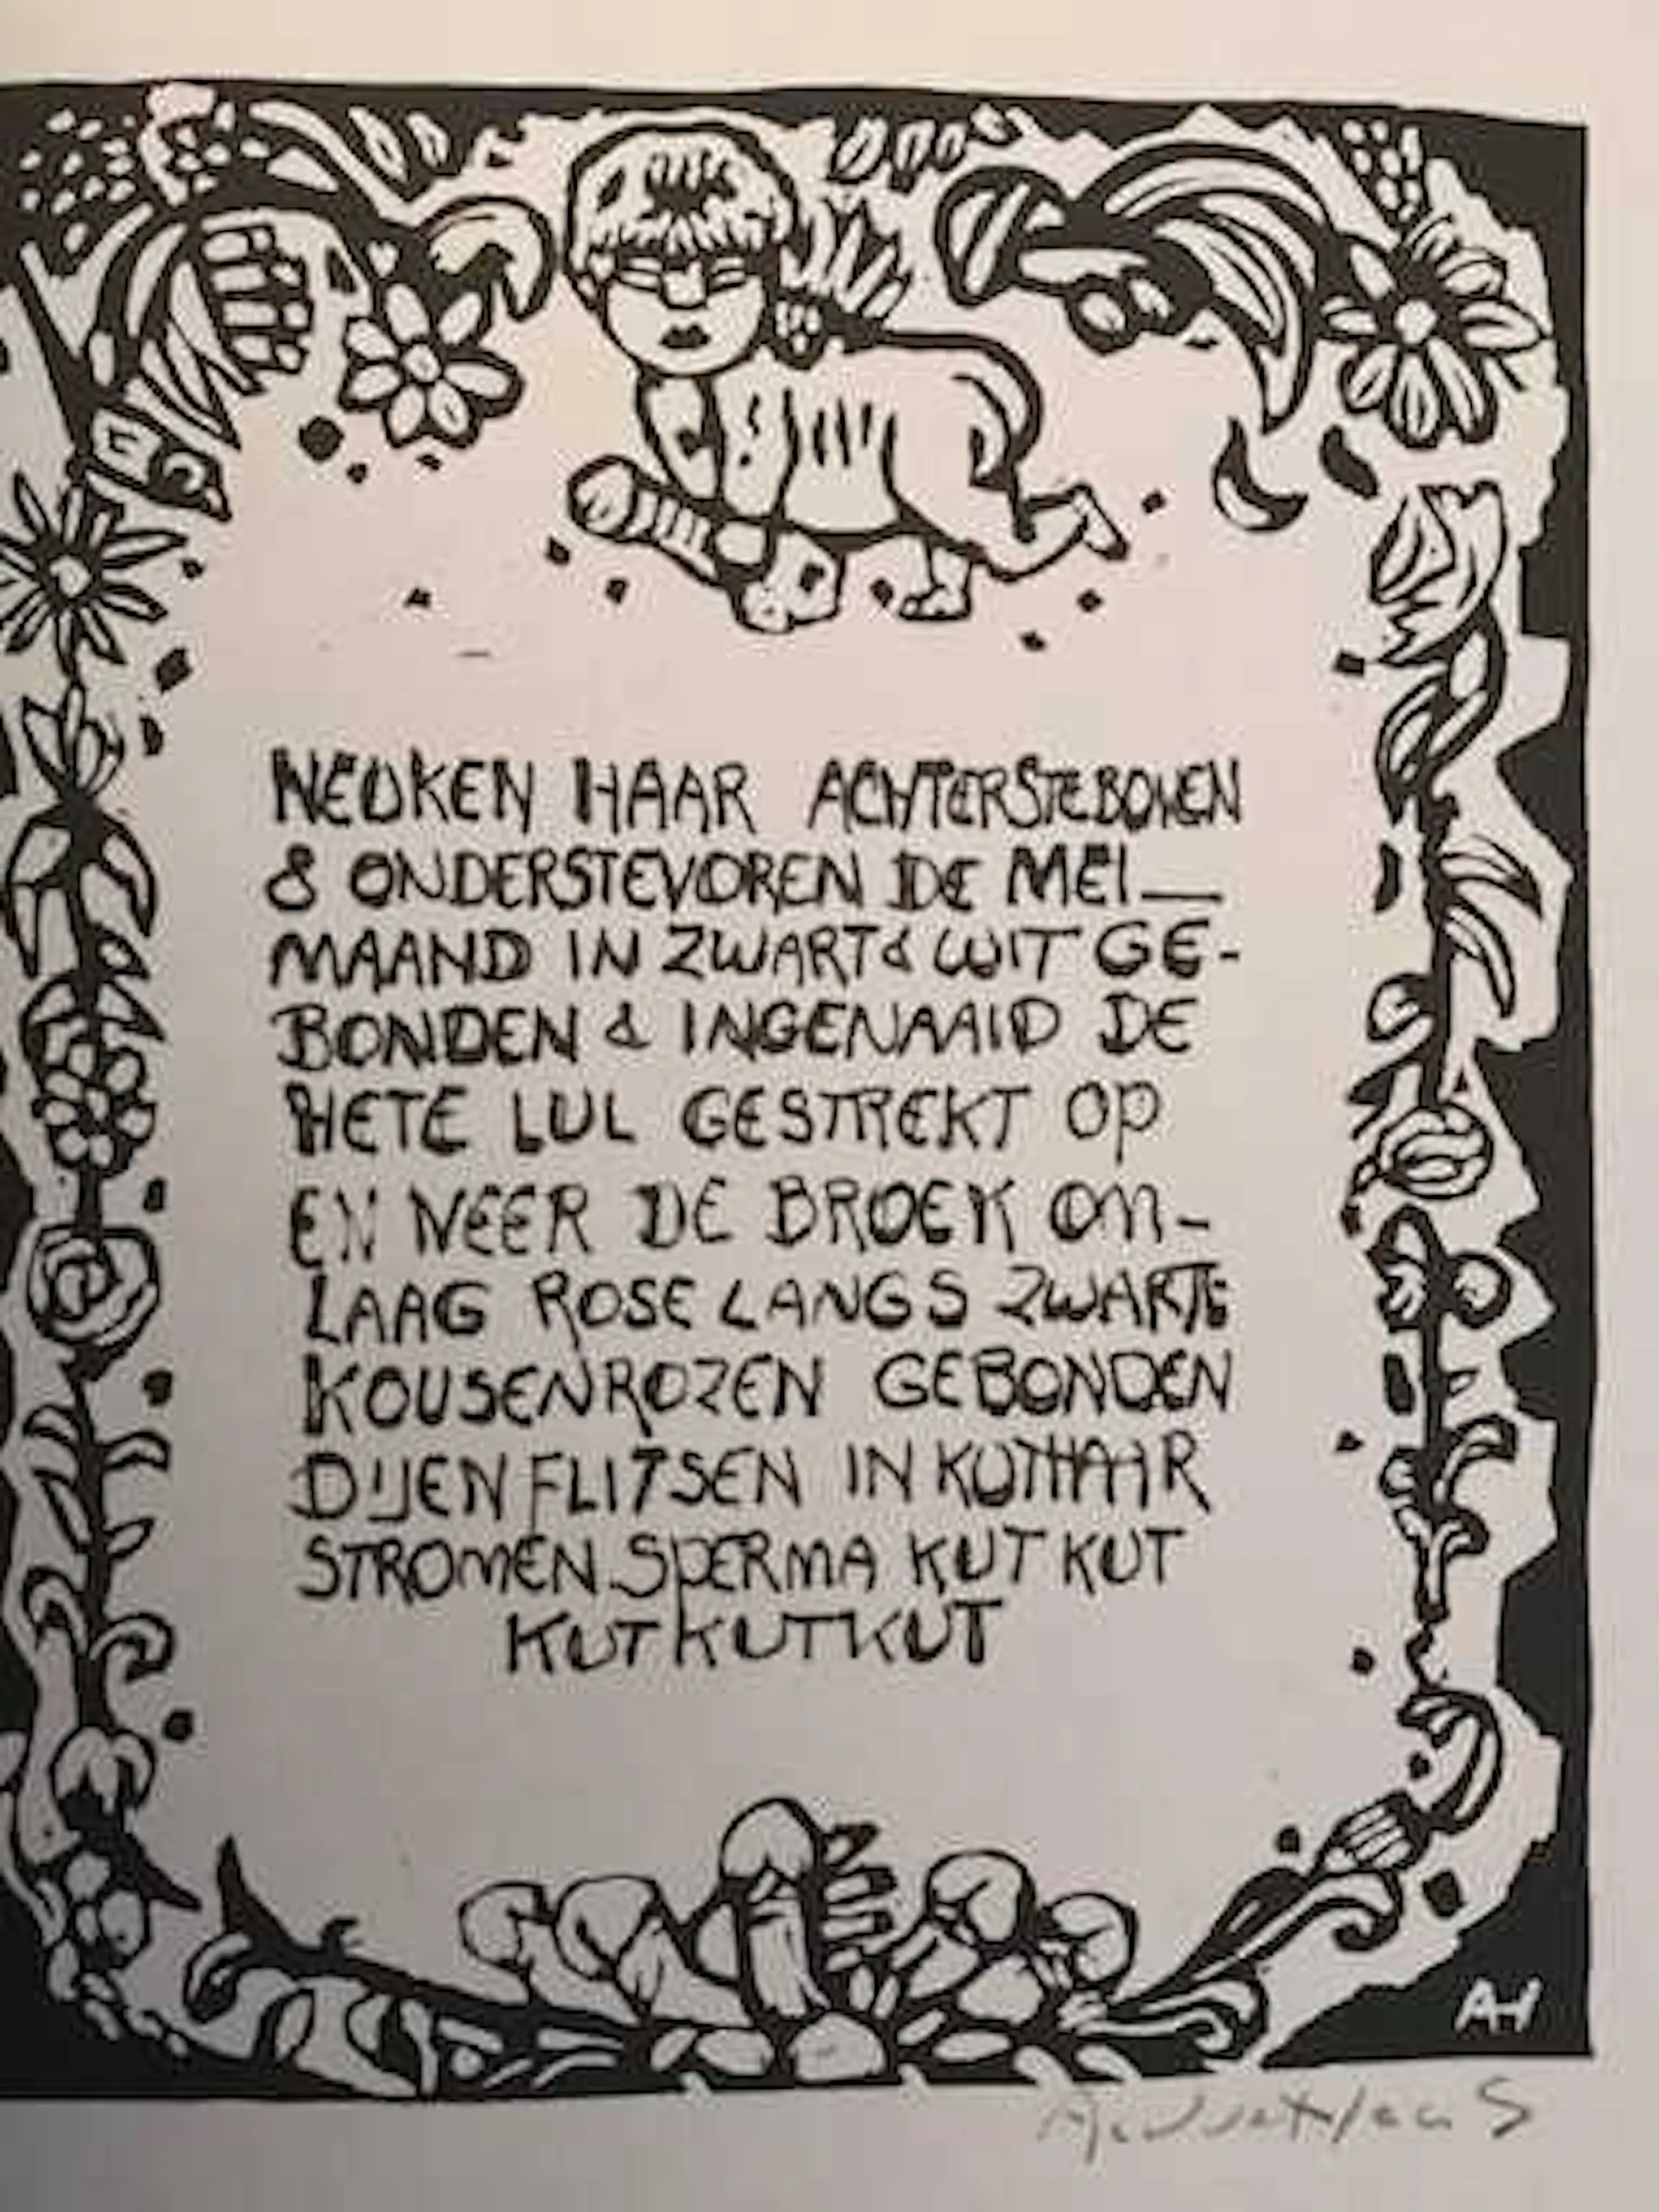 NEUKEN HAAR ACHTERSTEBOVEN
& ONDERSTEVOREN DE MEI—
MAAND IN ZWART & WIT GE-
BONDEN & INGENAAID DE
HETE LUL GESTREKT OP
EN NEER DE BROEK OM-
LAAG ROSE LANGS ZWARTE
KOUSENROZEN GEBONDEN
DIJEN FLITSEN IN KUTHAAR
STROMEN SPERMA KUT KUT
KUTKUTKUT
AH